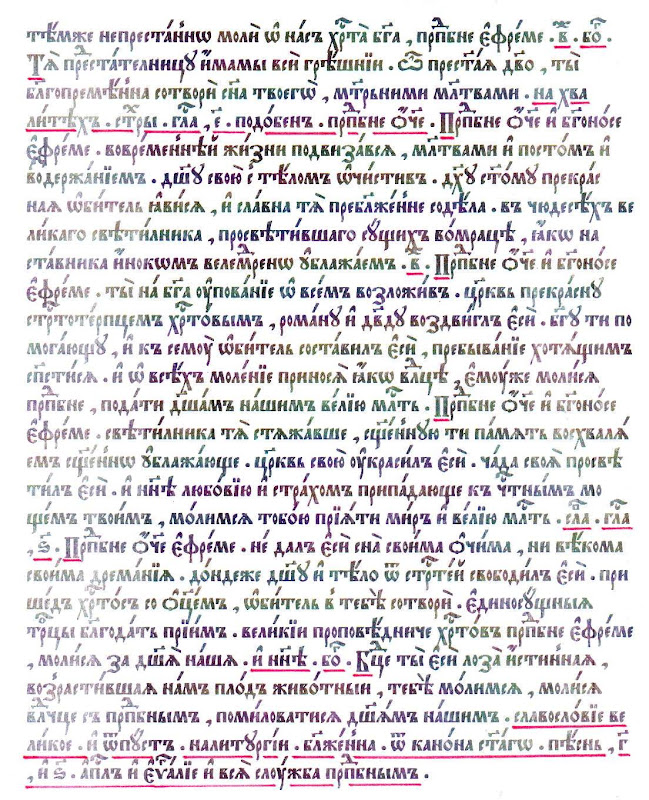 тѣ́мже непреста́ннѡ молѝ ѡ҆ на́съ хрⷭ҇та̀ бг҃а , прпⷣбне є҆фре́ме . в҃ . боⷢ҇ .
Тѧ̀ предста́телницꙋ и҆́мамы всѝ грѣ́шнїи . Ѿ прест҃а́ѧ дв҃о , ты̀
бл҃гопремѣ́нна сотворѝ сн҃а твоегѡ̀ , мт҃рьними мл҃твами . на хва
ли́тѣхъ . стⷯры . гла , є҃ . подо́бенъ . прпⷣбне ѻ҆́ч҃е . Прпⷣбне ѻ҆́ч҃е и҆ бг҃оно́се
є҆фре́ме . вовреме́ннѣй жи́зни подвиза́всѧ , мл҃твами и҆ посто́мъ и҆
воздержа́нїемъ . дш҃ꙋ свою̀ с тѣ́ломъ ѡ҆чи́стивъ . дх҃ꙋ ст҃о́мꙋ прекра́с
наѧ ѡ҆би́тель ꙗ҆ви́сѧ , и҆ сла́вна тѧ̀ пребл҃же́нне содѣ́ла . въ чюдесѣ́хъ ве
ли́каго свѣти́лника , просвѣти́вшаго сꙋ́щихъ во́мрацѣ , ꙗ҆́кѡ на
ста́вника и҆́нокѡмъ велемⷣренѡ ᲂу҆блажа́емъ . в҃ . Прпⷣбне ѻ҆́ч҃е и҆ бг҃оно́се
є҆фре́ме , ты̀ на́ бг҃а ᲂу҆пова́нїе ѡ҆ все́мъ возложи́въ . цр҃квь прекра́снꙋ
стрⷭ҇тоте́рпцемъ хрⷭ҇то́вымъ , рома́нꙋ и҆ дв҃дꙋ воздви́глъ є҆сѝ . бг҃ꙋ ти по
мога́ющꙋ , и҆ къ семоу̀ ѡ҆би́тель соста́вилъ є҆сѝ , пребыва́нїе хотѧ́щимъ
спⷭ҇ти́сѧ . и҆ ѡ҆ всѣ́хъ моле́нїе приносѧ̀ ꙗ҆́кѡ влⷣцѣ , є҆моу́же моли́сѧ
прпⷣбне , пода́ти дш҃а́мъ на́шимъ ве́лїю млⷭ҇ть . Прпⷣбне ѻ҆́ч҃е и҆ бг҃оно́се
є҆фре́ме . свѣти́лника тѧ̀ стѧжа́вше , сщ҃е́ннꙋю ти па́мѧть восхвалѧ́
емъ сщ҃е́ннѡ ᲂу҆блажа́юще . цр҃квь свою̀ ᲂу҆краси́лъ є҆сѝ . ча́да своѧ̀ просвѣ
ти́лъ є҆сѝ . и҆ нн҃ѣ любо́вїю и҆ стра́хомъ припада́юще къ чⷭ҇тнымъ мо
ще́мъ твои́мъ , мо́лимсѧ тобо́ю прїѧ́ти ми́ръ и҆ ве́лїю млⷭ҇ть . сла . гла
, ѕ҃ . Прпⷣбне ѻ҆́ч҃е є҆фре́ме . не да́лъ є҆сѝ сна̀ свои́ма ѻ҆чи́ма , ни вѣ́кома
свои́ма дрема́нїѧ . до́ндеже дш҃ꙋ и҆ тѣ́ло ѿ стрⷭ҇те́й свободи́лъ є҆сѝ . при
ше́дъ хрⷭ҇то́съ со ѻ҆ц҃е́мъ , ѡ҆би́тель в тебѣ̀ сотворѝ . є҆диносꙋ́щныѧ
трⷪ҇цы бл҃года́ть прїи́мъ . вели́кїи проповѣ́дниче хрⷭ҇то́въ прпⷣбне є҆фре́ме
, моли́сѧ за дш҃ѧ̀ на́шѧ . и҆ нн҃ѣ . боⷢ҇ . Бц҃е ты̀ є҆сѝ лоза̀ и҆́стиннаѧ ,
возрасти́вшаѧ на́мъ пло́дъ живо́тныи , тебѣ̀ мо́лимсѧ , моли́сѧ
влⷣчце съ прпⷣбнымъ , поми́ловатисѧ дш҃ѧ́мъ на́шимъ . славосло́вїе ве
ли́кое . и҆ ѿпꙋ́стъ . налитꙋргі́и . бл҃же́нна . ѿ кано́на ст҃а́гѡ . пѣ́снь , г҃
, и҆ ѕ҃ . а҆пⷭ҇лъ и҆ є҆ѵⷢ҇а́лїе и҆ всѧ̀ слоу́жба прпⷣбнымъ .